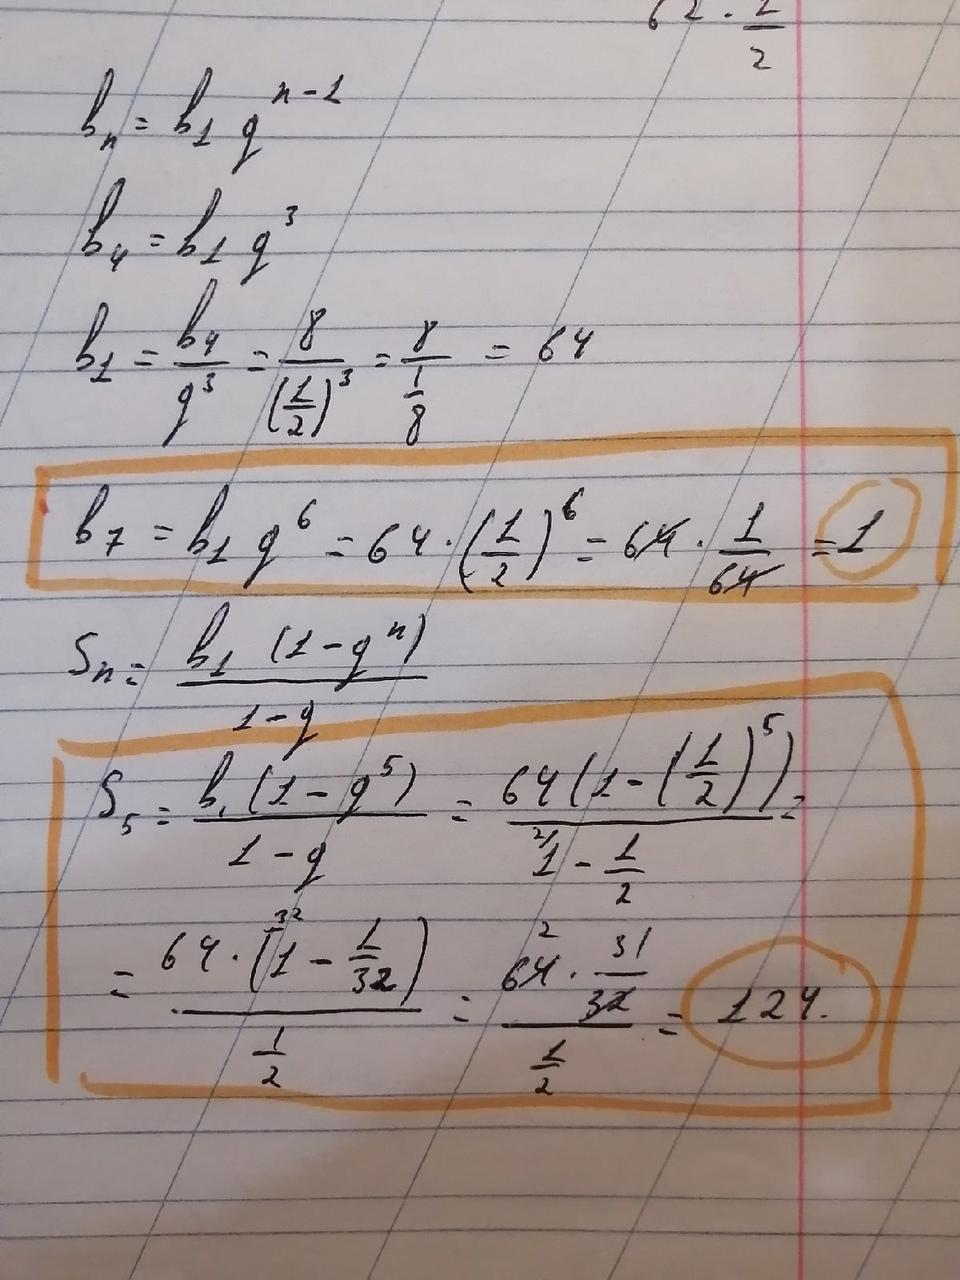 62 · 1/2
bₙ = b₁ qⁿ⁻¹
b₄ = b₁ q³
b₁ = b₄/q³ = 8/(1/2)³ = 8/(1/8) = 64
b₇ = b₁ q⁶ = 64 · (1/2)⁶ = 64 · 1/64 = 1
Sₙ = b₁ (1 - qⁿ)/(1 - q)
S₅ = b₁ (1 - q⁵)/(1 - q) = 64 (1 - (1/2)⁵)/(1 - 1/2) =
= 64 · (1 - 1/32)/(1/2) = (64 · 31/32)/(1/2) = 124.